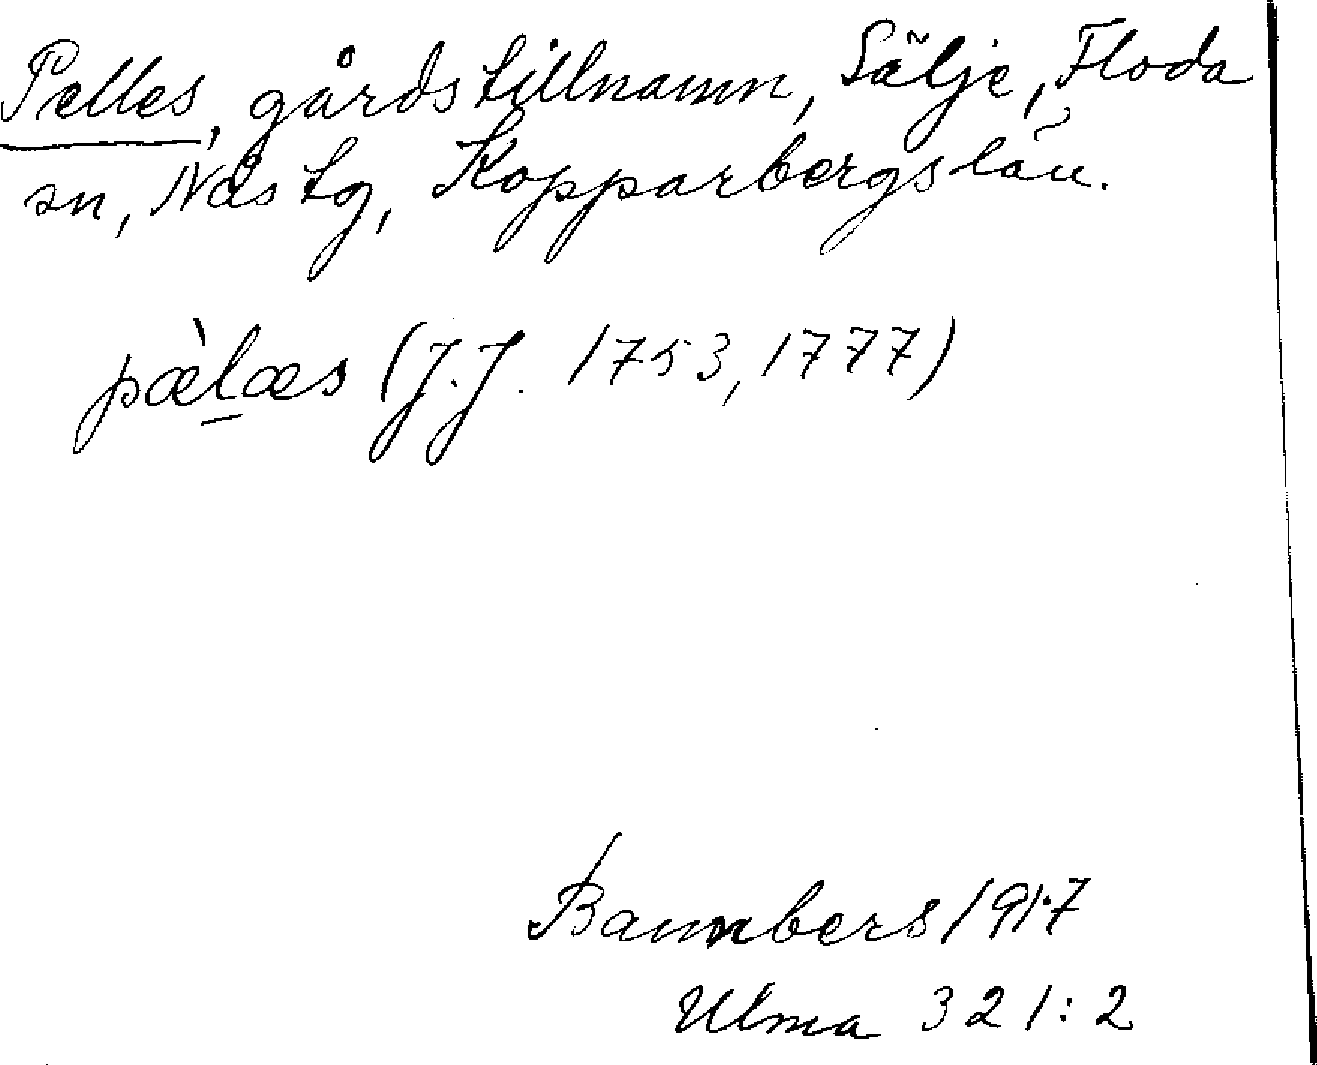 Pelles, gårdstillnamn, Sälje, Floda
sn, Nås tg, Kopparbergs län.
pæ̀l̲æs (J.J. 1753, 1777)
1917
Ulma 321:2